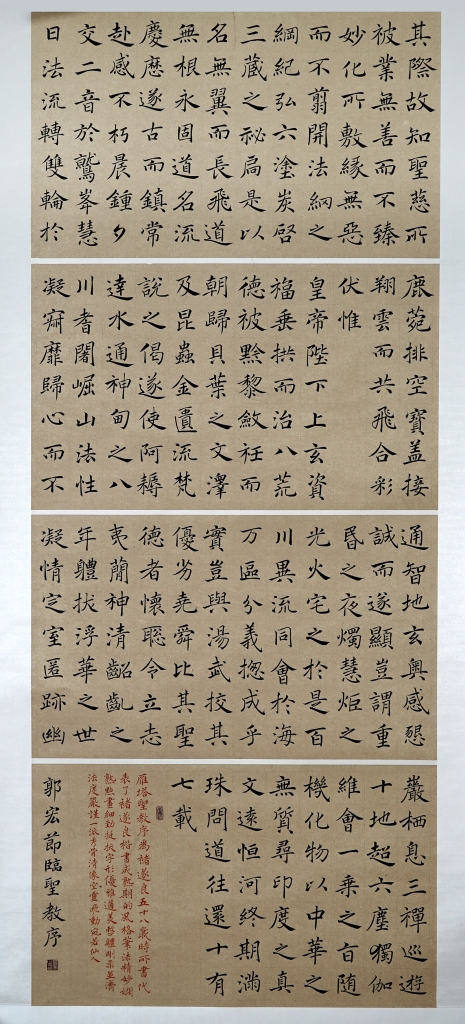 其際故知聖慈所
被業無善而不臻
妙化所敷緣無惡
而不翦開法網之
綱紀弘六塗炭啓
三藏之祕扃是以
名無翼而長飛道
無根永固道名流
慶歷遂古而鎮常
赴感不朽晨鍾夕
交二音於鷲峯慧
日法流轉雙輪於
鹿菀排空寶蓋接
翔雲而共飛合彩
伏惟
皇帝陛下上玄資
福垂拱而治八荒
德被黔黎斂衽而
朝歸貝葉之文澤
及昆蟲金匱流梵
說之偈遂使阿耨
達水通神甸之八
川耆闍崛山法性
凝寂靡歸心而不
通智地玄奧感懇
誠而遂顯豈謂重
昏之夜燭慧炬之
光火宅之於是百
川異流同會於海
万區分義揔成乎
實豈與湯武挍其
優劣堯舜比其聖
德者懷聡令立志
夷蕳神清齠齔之
年軆拔浮華之世
凝情定室匿跡幽
巖栖息三禪巡遊
十地超六塵獨伽
維會一乘之旨隨
機化物以中華之
無質尋印度之真
文遠恒河終期滿
珠問道往還十有
七載
雁塔聖教序為褚遂良五十八歲時所書代
表了褚遂良楷書成熟期的風格筆法精妙嫻
熟點畫細勁挺拔字形優雅遒美整體剛柔並濟
法度嚴謹一派秀骨清像空靈飛動宛若仙人
郭宏節臨聖教序